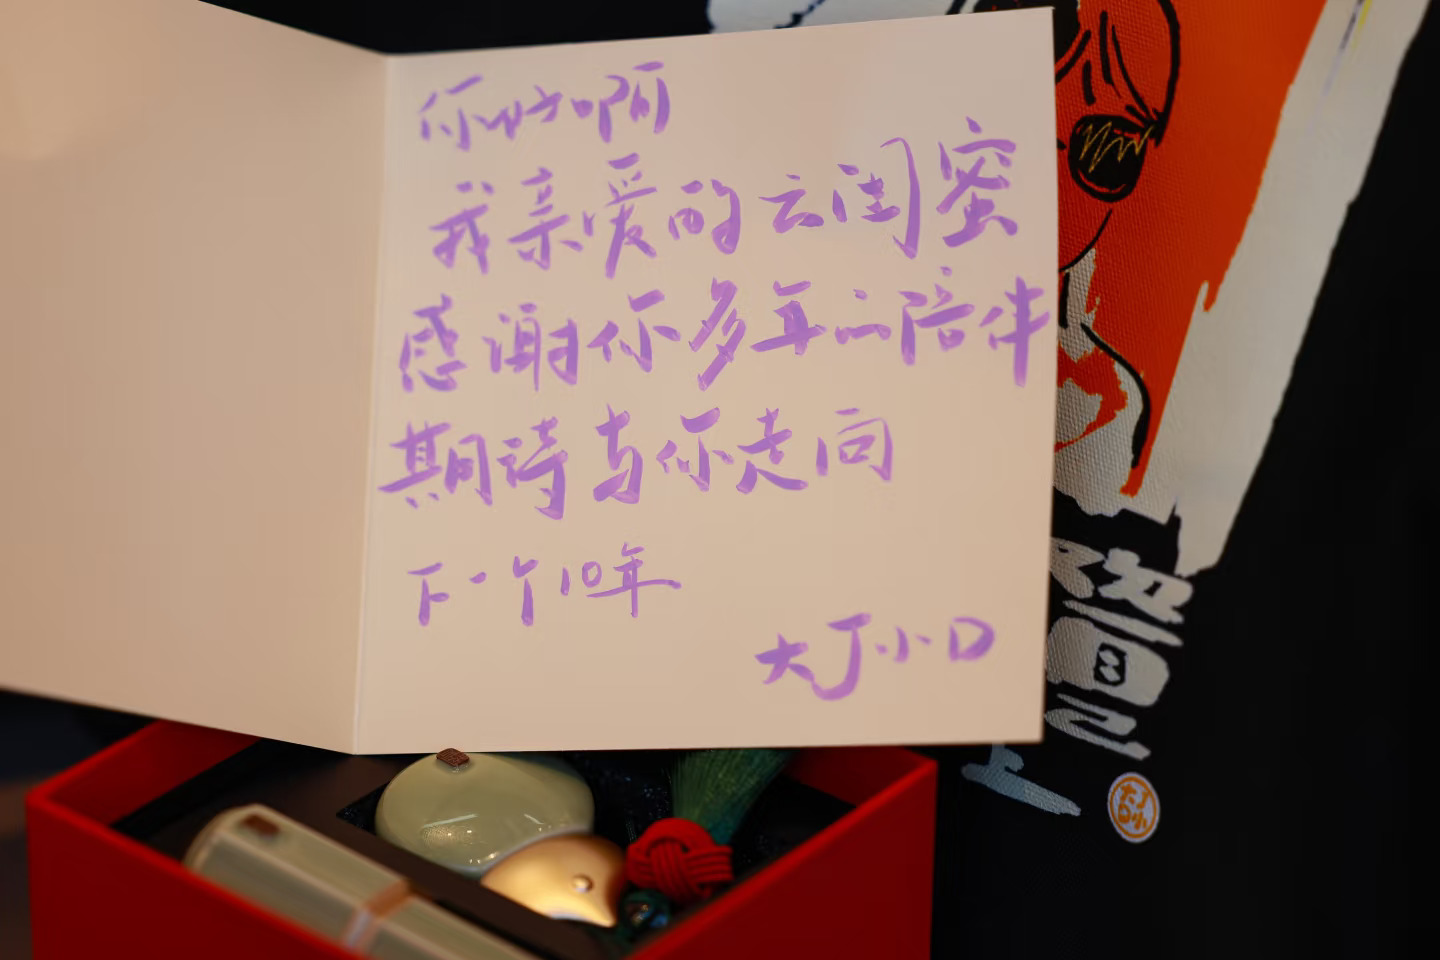 你好啊
我亲爱的云闺蜜
感谢你多年的陪伴
期待与你走向
下一个10年
大J小D